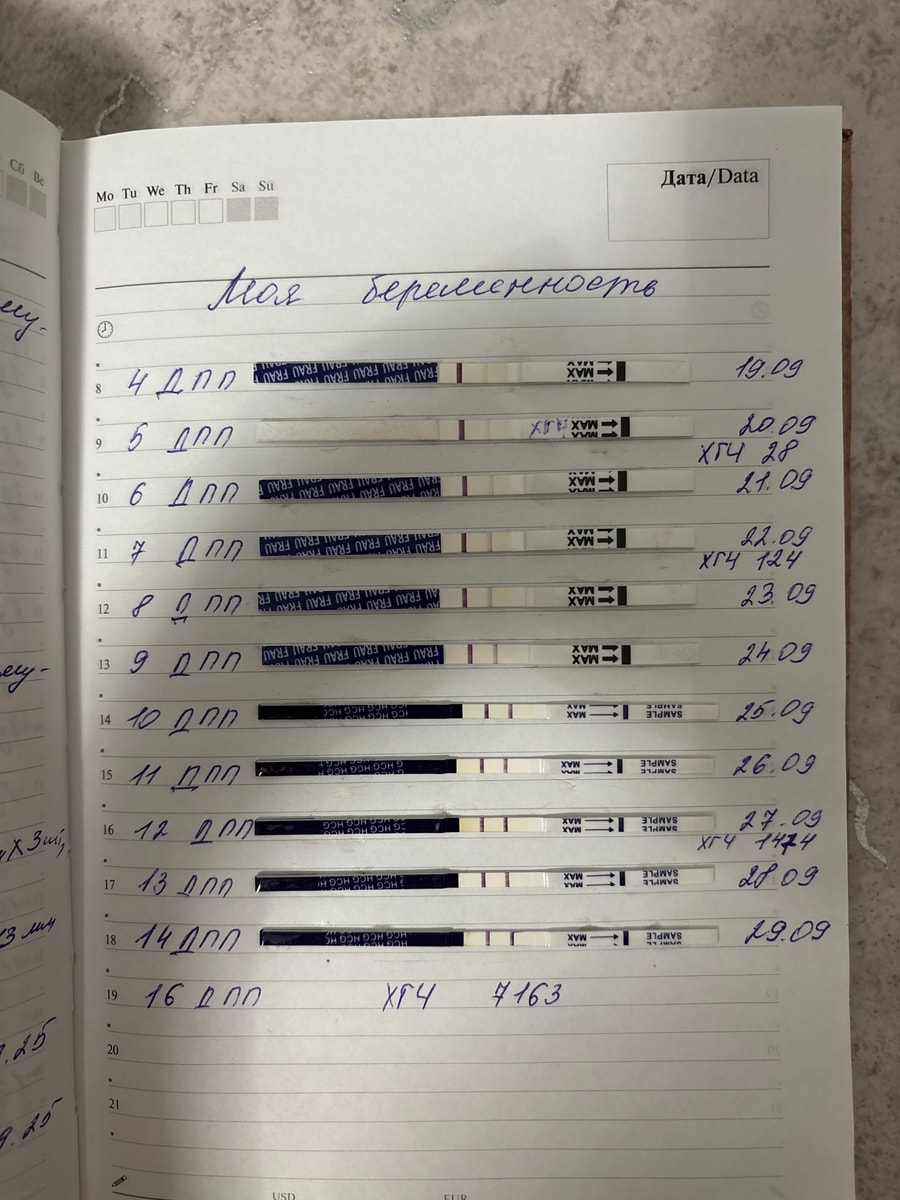 Сб Вс
Mo Tu We Th Fr Sa Su
Дата/Data
Моя беременность
8 4 ДПП FRAU FRAU FRAU FRAU FRAU MAX 19.09
9 5 ДПП MAX 20.09
ХГЧ 28
10 6 ДПП FRAU FRAU FRAU FRAU FRAU MAX 21.09
11 7 ДПП FRAU FRAU FRAU FRAU FRAU MAX 22.09
ХГЧ 124
12 8 ДПП FRAU FRAU FRAU FRAU FRAU MAX 23.09
13 9 ДПП FRAU FRAU FRAU FRAU FRAU MAX 24.09
14 10 ДПП HCG HCG HCG HCG MAX SAMPLE 25.09
15 11 ДПП HCG HCG HCG MAX SAMPLE 26.09
16 12 ДПП HCG HCG HCG HCG MAX SAMPLE 27.09
ХГЧ 1474
17 13 ДПП HCG HCG HCG HCG MAX SAMPLE 28.09
18 14 ДПП HCG HCG HCG MAX SAMPLE 29.09
19 16 ДПП ХГЧ 7163
20
21
USD EUR